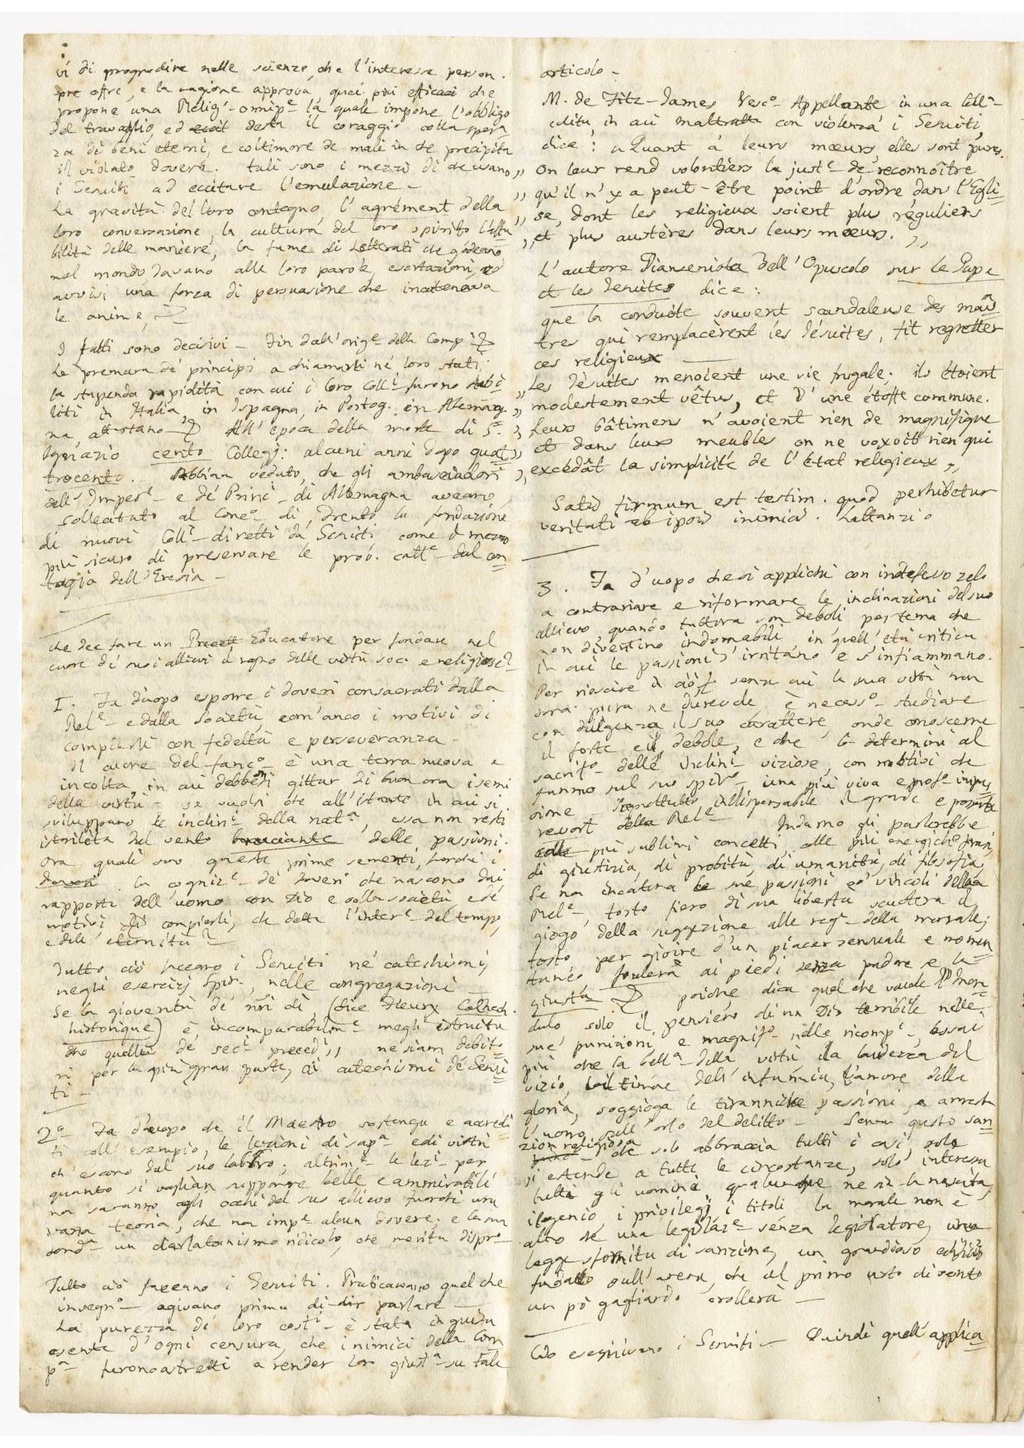 vi di progredire nelle scienze, che l'interesse person.
pre offre, e la ragione approva, quei più efficaci che
propone una Relig.e omnip.e la quale impone l'obbligo
del travaglio, ed desta il coraggio colla speran
za di beni eterni, e coltimore de mali in se precipita
il violato dovere. tali sono i mezzi di cui usano
i Gesuiti ad eccitare l'emulazione -
La gravità del loro contegno, l'agrément della
loro conversazione, la cultura del loro spirito l'affa
bilità delle maniere, la fama di Letterati che godeano
nel mondo davano alle loro parole, esortazioni, ed
avvisi una forza di persuasione che incatenava
le anime,
I fatti sono decisivi - Fin dall'orig.e della Comp.
la premura de' principi a chiamarli ne' loro stati,
la stupenda rapidità con cui i loro Coll.i furono stabi
liti in Italia, in Ispagna, in Portog. in Alemag
na, attestano All'epoca della morte di S.
Ignazio cento Collegi: alcuni anni dopo quat
trocento. Abbiam veduto, che gli ambasciadori
dell'Imper.e e de' Princ. di Allemagna aveano
sollecitato al Conc.o di Trento la fondazione
di nuovi Coll.i diretti da Gesuiti come il mezzo
più sicuro di preservare le prov. catt.e dal con
tagio dell'Eresia -
che dee fare un Precett Educatore per fondare nel
cuore de' suoi allievi il regno delle virtù soci. e religiose?
I. Fa d'uopo esporre i doveri consacrati dalla
Rel.e e dalla Società, com'anco i motivi di
compierli con fedeltà e perseveranza -
Il cuore del fanc.o è una terra nuova e
incolta, in cui debbesi gittar di buon ora i semi
della virtù - se vuolsi che all'istante in cui si
sviluppano le inclin.i della nat.a, essa non resti
isterilita dal vento bruciante delle passioni.
Ora quali son queste prime sementi,
doveri la cogniz.e de' doveri che nascono dai
rapporti dell'uomo con Dio e colla società e de'
motivi di compierli, che detta l'inter.e del tempo,
e dell'eternità?
Tutto ciò faceano i Gesuiti ne' catechismi
negli esercizj spir., nelle congregazioni -
Se la gioventù de' nri dì (dice Fleury Catech.
historique) è incomparabilm.e megl. istruita
che quella de' sec.i preced.,, ne siam debito
ri per la più gran parte, ai catechismi de' Gesui
ti -
2.o Fa d'uopo che il Maestro sostenga e accredi
ti coll'esempio, le lezioni di sap.a e di virtù
ch'escono dal suo labbro; altrim.e le lez.i per
quanto si voglian supporre belle e ammirabili
non saranno agli occhi del suo allievo fuorchè una
vana teoria, che non imp.e alcun dovere: e la sua
cond.a un ciarlatanismo ridicolo, che merita dispr.o
Tutto ciò faceano i Gesuiti. Praticavano quel che
insegn.o - agivano prima di dir parlare -
La purezza de' loro cost.i è stata in guisa
esente d'ogni censura, che i nimici della Com
p.a furono astretti a render loro giust.a su tale
articolo -
M. de Fitz-James Vesc.o Appellante in una lett.a
edita, in cui maltratta con violenza i Gesuiti,
dice: „ Quant à leurs mœurs elles sont pures.
„ On leur rend volontiers la just.e de reconnoître
„ qu'il n'y a peut-être point d'ordre dans l'Egli
„ se, dont les religieux soient plus réguliers
„ et plus austères dans leurs mœurs. „
L'autore Giansenista dell'Opuscolo sur le Pape
et les Jésuites dice:
que la conduite souvent scandaleuse des maî
tres qui remplacèrent les Jésuites, fit regretter
ces religieux
Les Jésuites menoient une vie frugale: ils étoient
„ modestement vêtus, et d'une étoffe commune.
„ Leurs bâtimens n'avoient rien de magnifique
„ et dans leurs meubles on ne voyoit rien qui
„ excédât la simplicité de l'état religieux „
Satis firmum est testim. quod perhibetur
veritati ab ipsis inimicis. Lattanzio
3. Fa d'uopo che si applichi con indefesso zelo
a contrariare e riformare le inclinazioni del suo
allievo quando tuttora son deboli per tema che
non diventino indomabili in quell'età critica
in cui le passioni s'irritano e s'infiammano.
Per riuscire a ciò senza cui la sua virtù non
sarà pura ne durevole, è necess.o studiare
con diligenza il suo carattere, onde conoscerne
il forte e il debole, e che lo determini al
sacrif.o delle inclini viziose, con motivi che
fanno sul suo spir.o una più viva e prof.a impres
sione Soprattutto indispensabile il grande e possente
della Rel.e Indarno gli parlerebbe
colle più sublimi concetti, alle più energiche frasi,
di giustizia, di probità, di umanità, di filosofia,
Se non incatena le sue passioni co' vincoli della
Rel.e, tosto fiero di sua libertà scuoterà il
giogo della suggezione alle reg.e della morale;
tosto per gioire d'un piacer sensuale e momen
taneo foulera ai piedi senza pudore e la
giustà poichè dica quel che vuole il mon
do solo il pensiero di un Dio terribile nelle
sue punizioni e magnif.o nelle ricomp.e, assai
più che la bell.a della virtù la laidezza del
vizio, dell'infamia, l'amore della
gloria, soggioga le tiranniche passioni, e arresta
l'uomo sull'orlo del delitto - Senza questo san
zion religiosa che sola abbraccia tutti i casi, sola
si estende a tutte le circostanze, sola interessa
tutti gli uomini qualunque ne sia la nascita,
il genio, i privilegj i titoli la morale non è
altro che una legislaz.e senza legislatore, una
legge sfornita di sanzione, un grandioso edificio
fondato sull'arena, che al primo urto di vento
un pò gagliardo crollerà -
Ciò eseguivano i Gesuiti - Quindi quell'applica